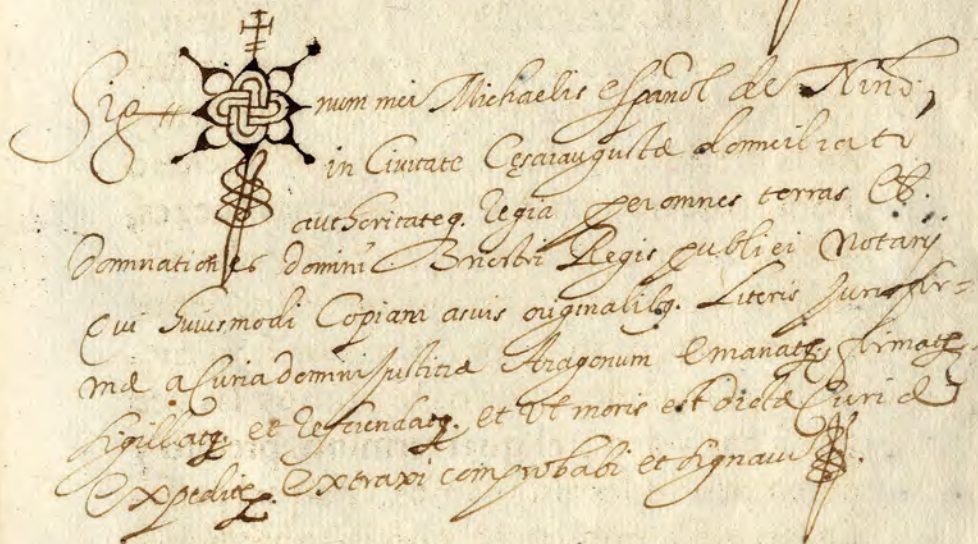 Sig num mei Michaelis español de Nino,
in Ciuitate Cęsaraugustæ domiciliati
authoritateq. Regia per omnes terras et
Domnationes domini nostri Regis publici Notarij
Qui huiusmodi Copiam a suis originalibq. Literis Jurisfir=
mæ a Curia domini Justitiæ Aragonum Emanatę, firmatę
sigillatę. et Referendatę. et Ut moris est dictæ Curiæ
Expeditę. Extraxi comprobabi et signaui